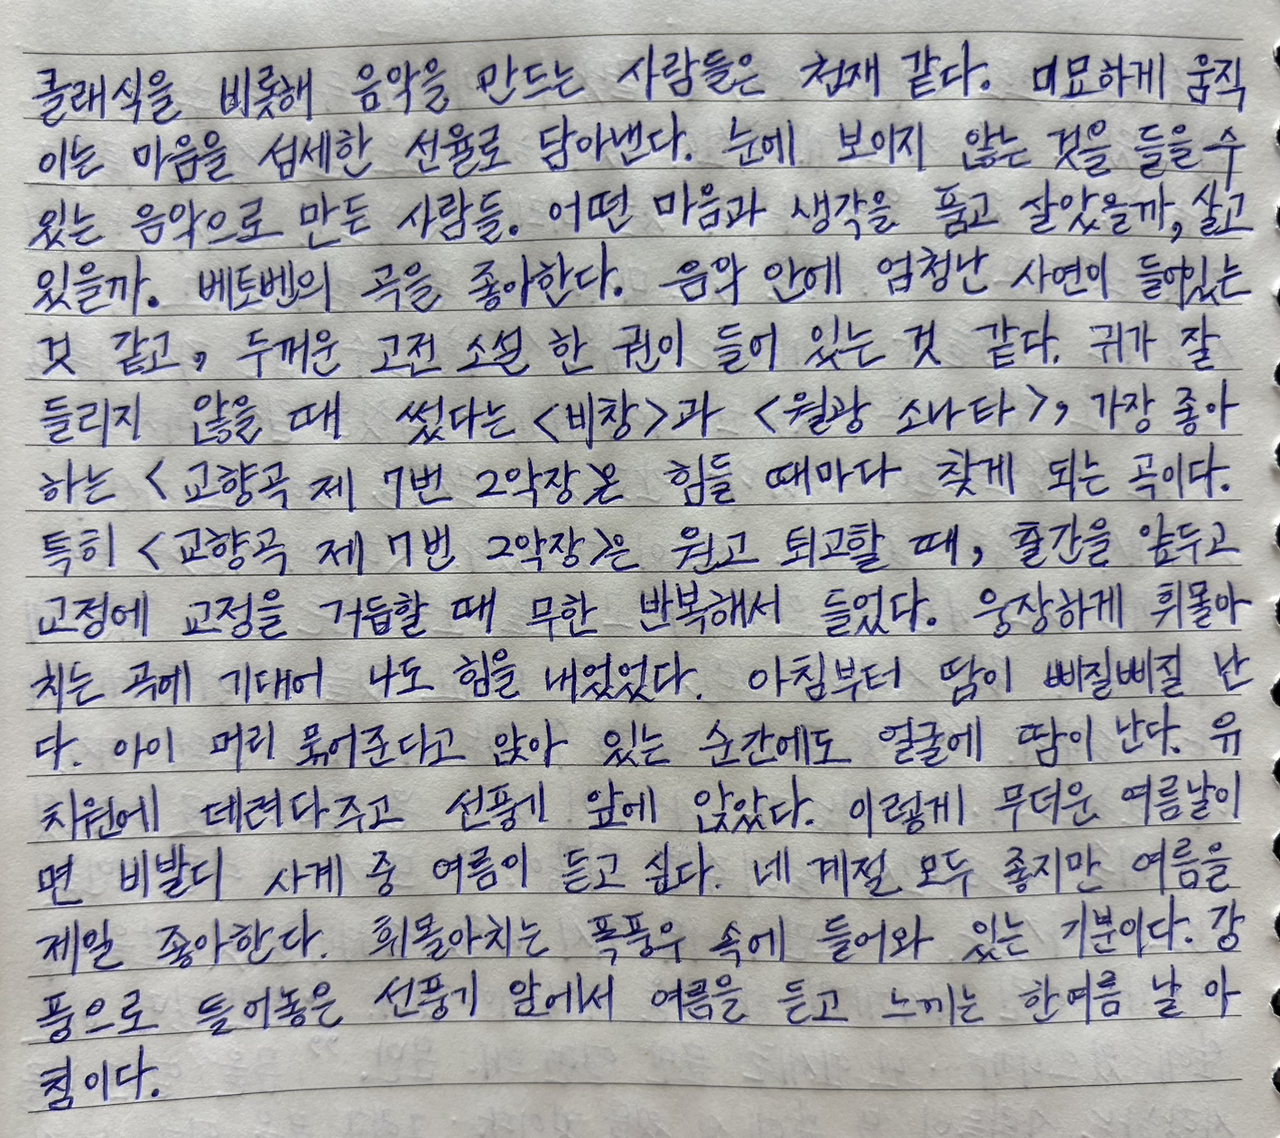 클래식을 비롯해 음악을 만드는 사람들은 천재 같다. 미묘하게 움직
이는 마음을 섬세한 선율로 담아낸다. 눈에 보이지 않는 것을 들을 수
있는 음악으로 만든 사람들. 어떤 마음과 생각을 품고 살았을까, 살고
있을까. 베토벤의 곡을 좋아한다. 음악 안에 엄청난 사연이 들어있는
것 같고, 두꺼운 고전 소설 한 권이 들어 있는 것 같다. 귀가 잘
들리지 않을 때 썼다는 <비창>과 <월광 소나타>, 가장 좋아
하는 <교향곡 제 7번 2악장>은 힘들 때마다 찾게 되는 곡이다.
특히 <교향곡 제 7번 2악장>은 원고 퇴고할 때, 출간을 앞두고
교정에 교정을 거듭할 때 무한 반복해서 들었다. 웅장하게 휘몰아
치는 곡에 기대어 나도 힘을 내었었다. 아침부터 땀이 삐질삐질 난
다. 아이 머리 묶어준다고 앉아 있는 순간에도 얼굴에 땀이 난다. 유
치원에 데려다주고 선풍기 앞에 앉았다. 이렇게 무더운 여름날이
면 비발디 사계 중 여름이 듣고 싶다. 네 계절 모두 좋지만 여름을
제일 좋아한다. 휘몰아치는 폭풍우 속에 들어와 있는 기분이다. 강
풍으로 틀어놓은 선풍기 앞에서 여름을 듣고 느끼는 한여름 날 아
침이다.